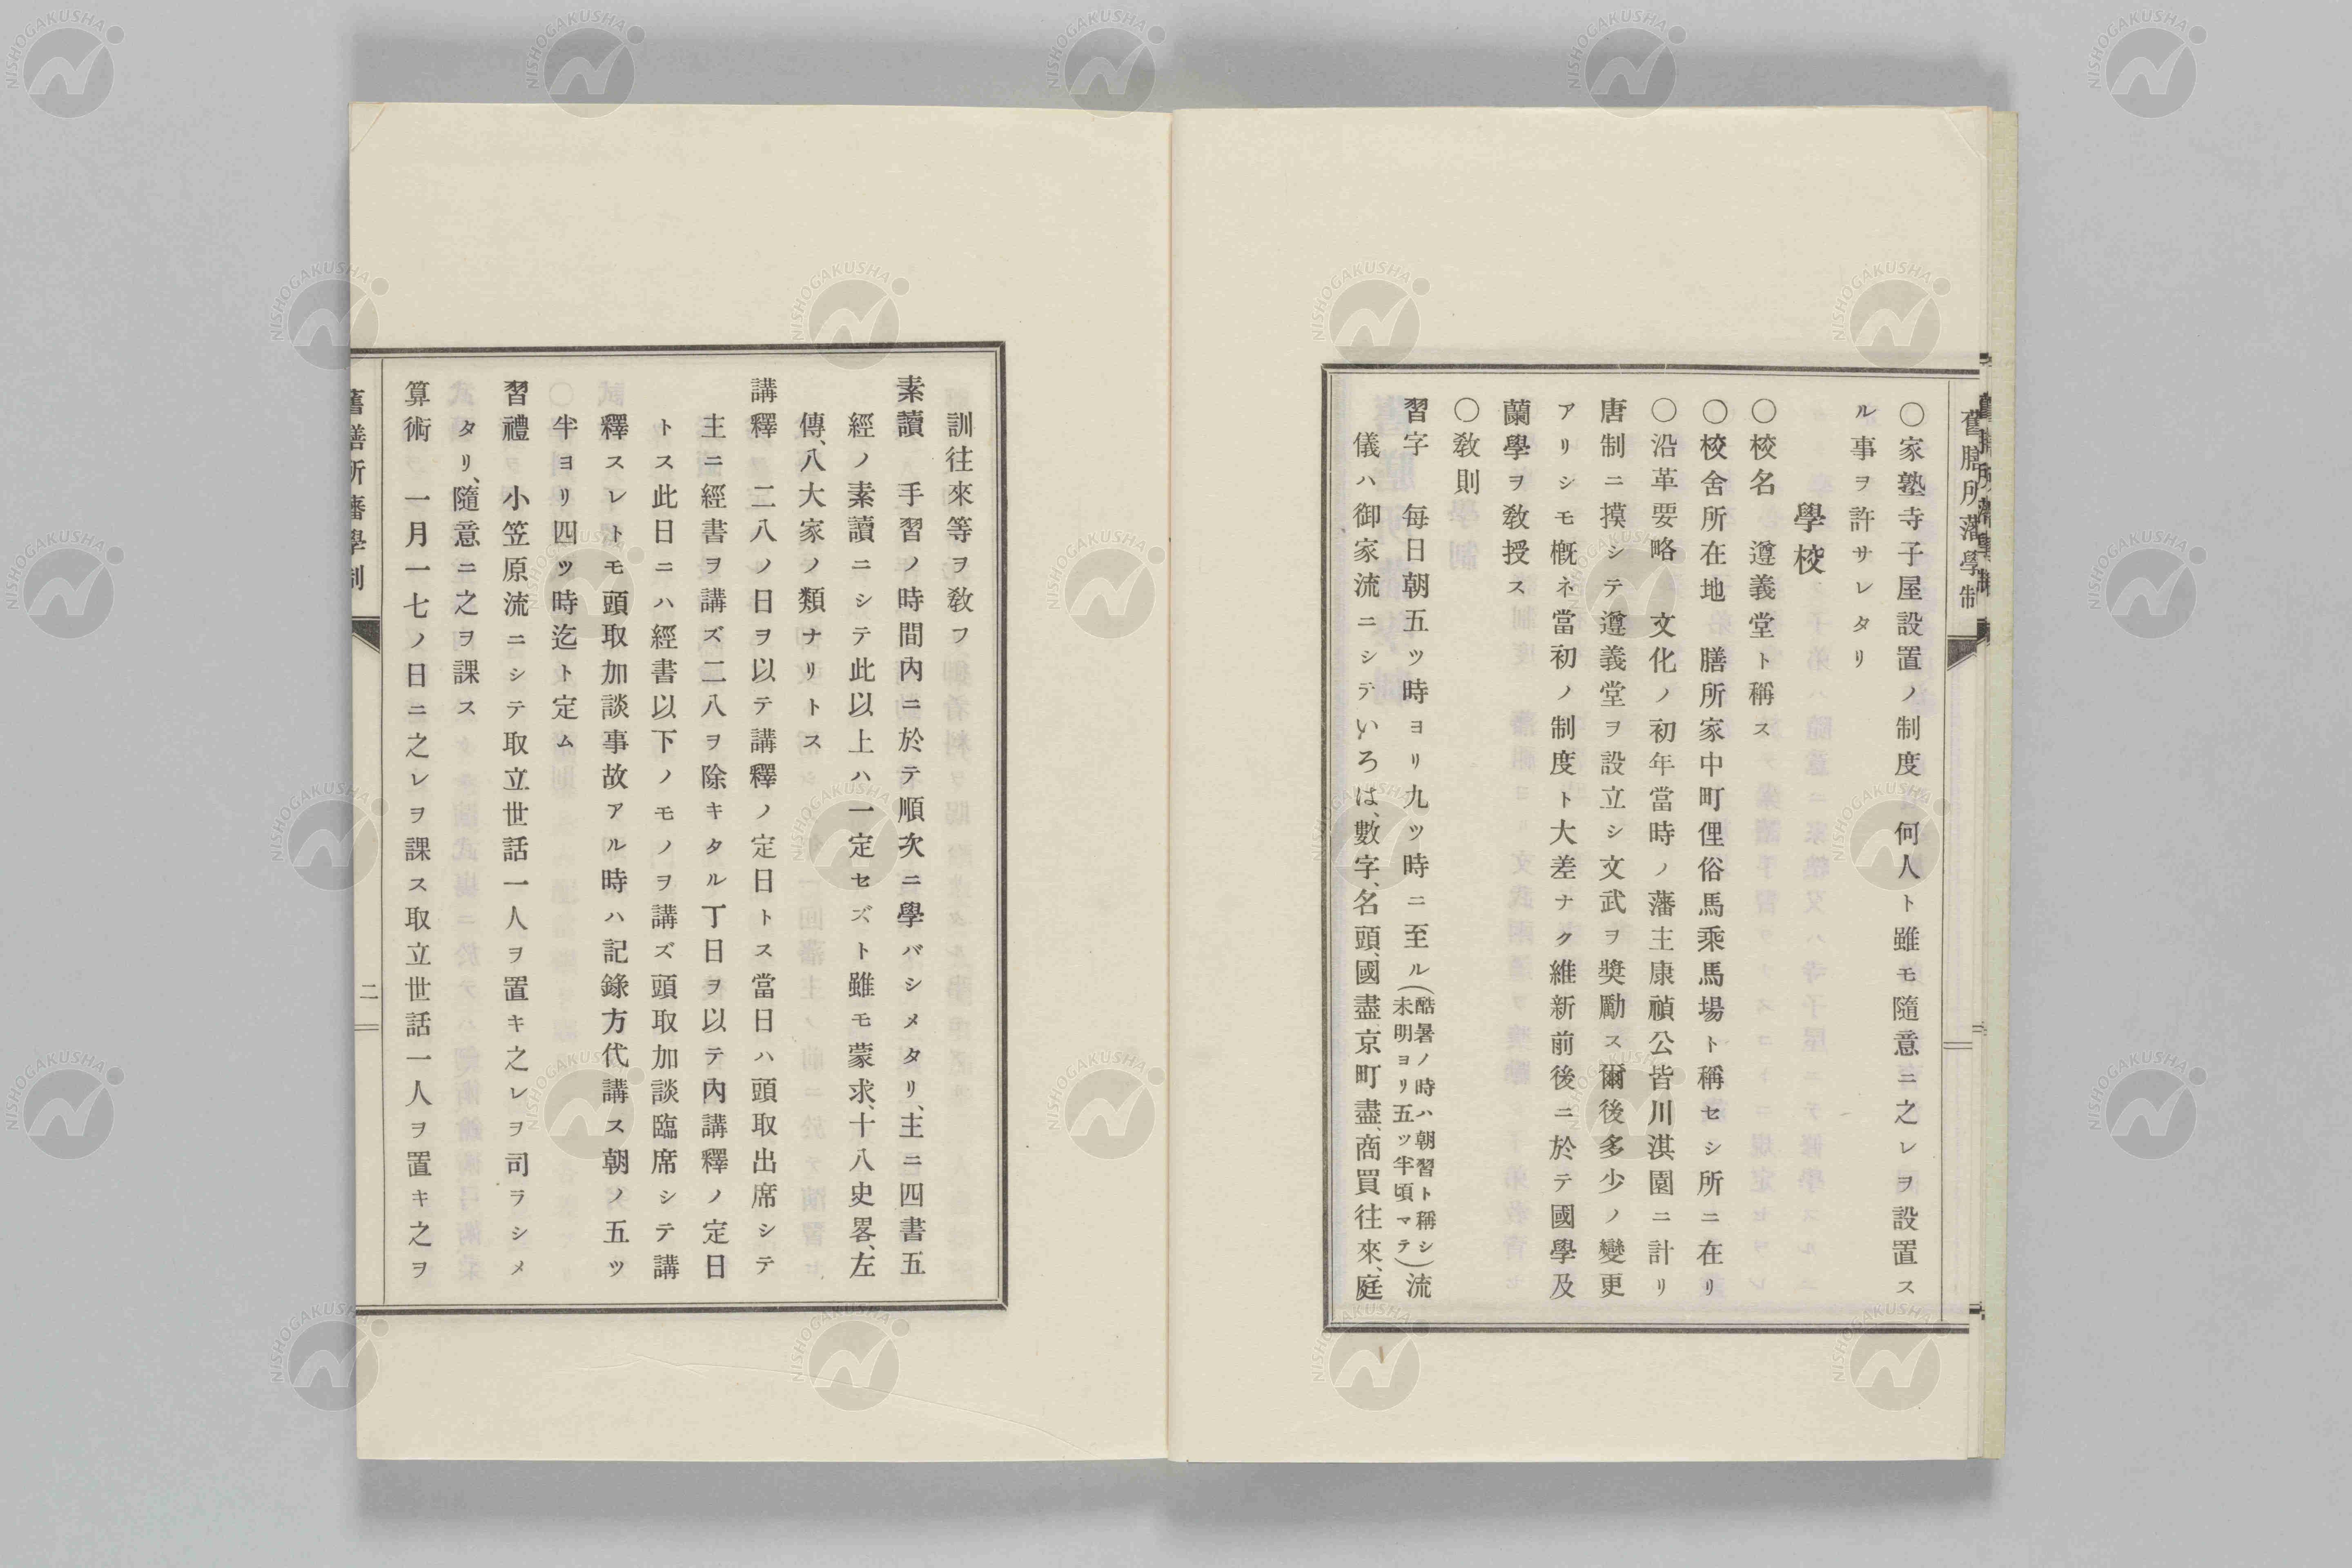 舊膳所藩學制
〇家塾寺子屋設置ノ制度　何人ト雖モ隨意ニ之レヲ設置ス
ル事ヲ許サレタリ
學校
〇校名　遵義堂ト稱ス
〇校舍所在地　膳所家中町俚俗馬乘馬場ト稱セシ所ニ在リ
〇沿革要略　文化ノ初年當時ノ藩主康禎公皆川淇園ニ計リ
唐制ニ摸シテ遵義堂ヲ設立シ文武ヲ奬勵ス爾後多少ノ變更
アリシモ槪ネ當初ノ制度ト大差ナク維新前後ニ於テ國學及
蘭學ヲ敎授ス
〇敎則
習字　每日朝五ツ時ヨリ九ツ時ニ至ル(酷暑ノ時ハ朝習ト稱シ未明ヨリ五ツ半頃マテ)流
儀ハ御家流ニシテいろは、數字、名頭、國盡、京町盡、商買往來、庭
訓往來等ヲ敎フ
素讀　手習ノ時間內ニ於テ順次ニ學バシメタリ、主ニ四書五
經ノ素讀ニシテ此以上ハ一定セズト雖モ蒙求、十八史畧、左
傳、八大家ノ類ナリトス
講釋　二八ノ日ヲ以テ講釋ノ定日トス當日ハ頭取出席シテ
主ニ經書ヲ講ズ二八ヲ除キタル丁日ヲ以テ內講釋ノ定日
トス此日ニハ經書以下ノモノヲ講ズ頭取加談臨席シテ講
釋スレトモ頭取加談事故アル時ハ記錄方代講ス朝ノ五ツ
半ヨリ四ツ時迄ト定ム
習禮　小笠原流ニシテ取立世話一人ヲ置キ之レヲ司ラシメ
タリ、隨意ニ之ヲ課ス
算術　一月一七ノ日ニ之レヲ課ス取立世話一人ヲ置キ之ヲ
舊膳所藩學制
二
NISHOGAKUSHA